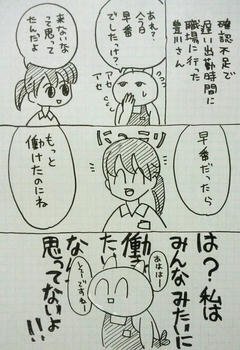 確認不足で
遅い出勤時間に
職場に行った
豊川さん
あれ?
今日
早番
でしたっけ?
アセ
アセ
来ないな
って思って
たんだよ
早番だったら
ニッコリ
もっと
働けたのにね
は?私は
みんなみたいに
働き
たい
なんて
思ってないよ
!!
あはは
そうですね